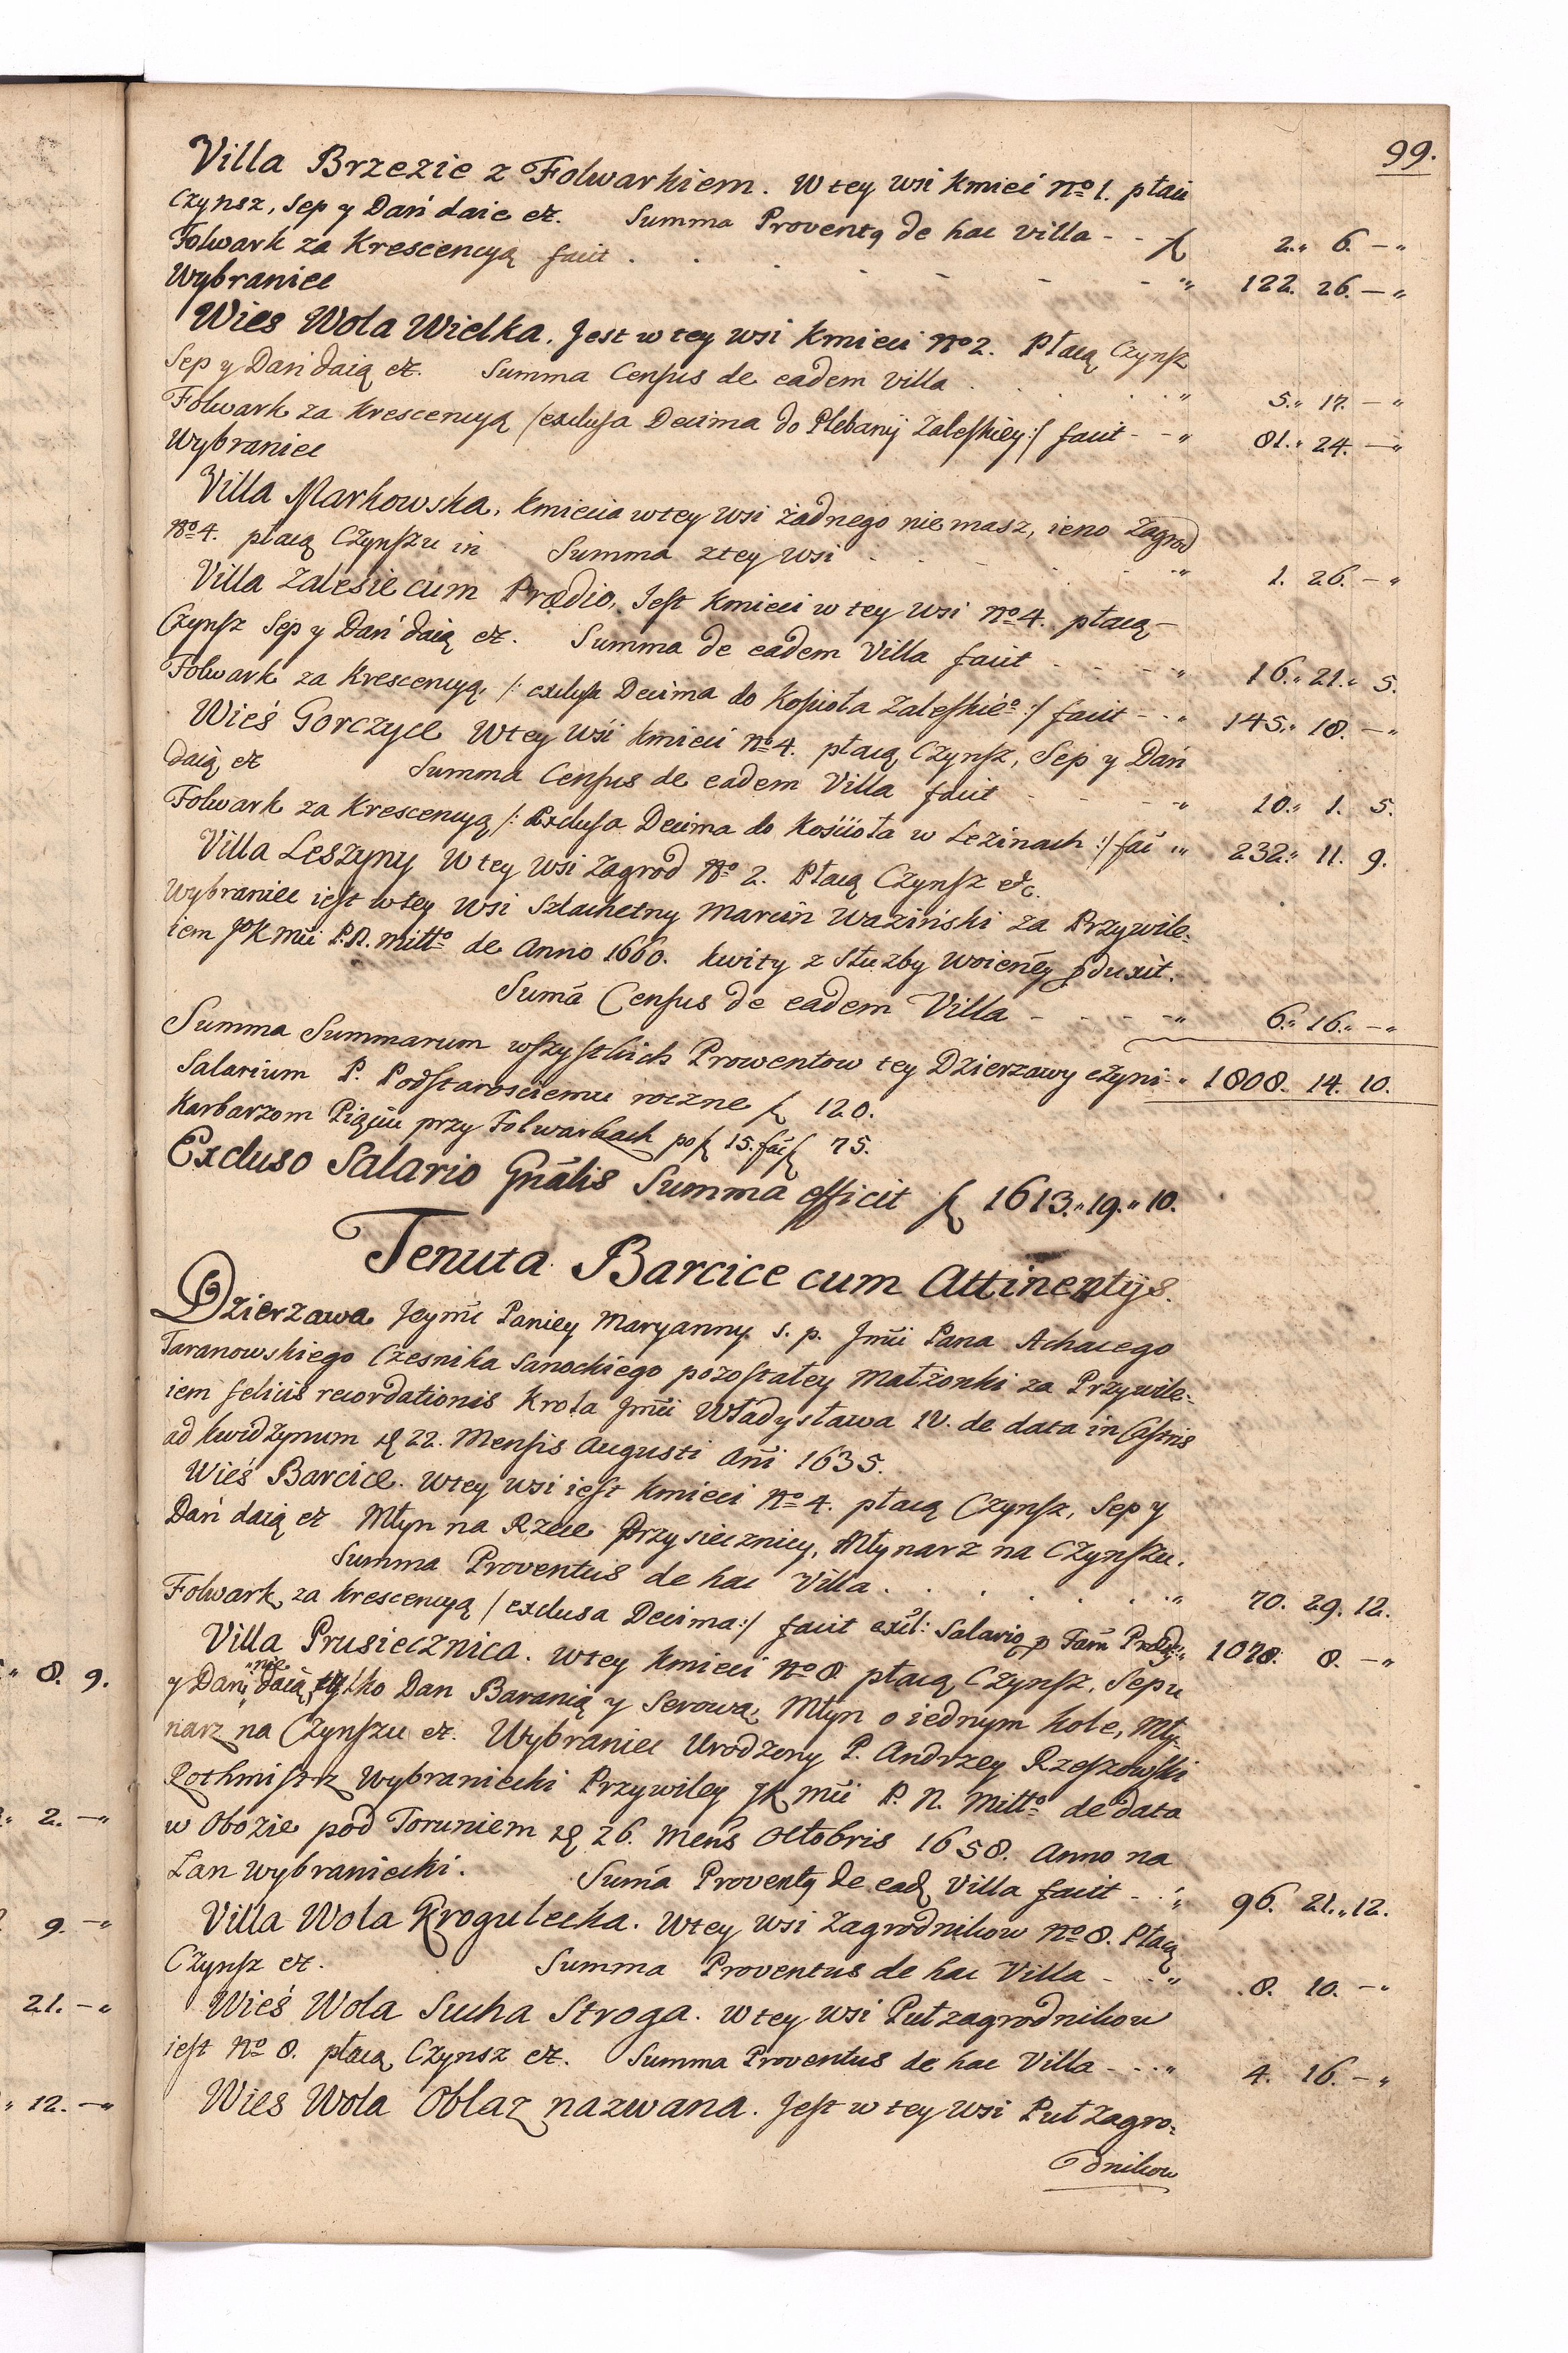 99.
Villa Brzezie z Folwarkiem. W tey wsi Kmieć No 1. płaci
Czynsz, Sep y Dań daie etc. Summa Proventq de hac villa - - f 2. 6. —
Folwark za Krescencyą facit . . . - - - " 122. 26. —
Wybraniec
Wies Wola Wielka. Jest w tey wsi Kmieci No 2. Płacą Czynsz
Sep y Dań daią etc. Summa Census de eadem villa . . . " 5. 17. —
Folwark za Krescencyą /exclusa Decima do Plebanij Zaleskiey:/ facit - - " 81. 24. —
Wybraniec
Villa Markowska, Kmiecia w tey wsi żadnego niemasz, ieno Zagrod
No 4. płacą Czynszu in Summa z tey wsi . - - . . - " 1. 26. —
Villa Zalesie cum Prædio, Jest Kmieci w tey wsi No 4. płacą
Czynsz Sep y Dań daią etc. Summa de eadem Villa facit - - - - " 16. 21. 5.
Folwark za Krescencyą, /: exclusa Decima do Kosciola Zaleskieo :/ facit - - " 145. 18. —
Wieś Gorczyce W tey wsi Kmieci No 4. płacą Czynsz, Sep y Dań
daią etc Summa Census de eadem Villa facit - - - - " 10. 1. 5.
Folwark za Krescencyą /: Exclusa Decima do Kosciola w Lezinach :/ fac " 232. 11. 9.
Villa Leszyny W tey wsi Zagrod No 2. Płacą Czynsz etc.
Wybraniec iest w tey wsi Szlachetny Marcin Waziński za Przywile-
iem JoK Mci P. N. Miłło de Anno 1660. kwity z Służby Woieney pduxit.
Suma Census de eadem Villa - - - - " 6. 16. —
Summa Summarum wszystkich Prowentow tey Dzierzawy czyni " 1808. 14. 10.
Salarium P. Podstarosciemu roczne f 120.
Karbarzom Pięciu przy Folwarkach po f 15. fac f 75.
Excluso Salario Gnalis Summa efficit f 1613. 19. 10.
Tenuta Barcice cum Attinentijs.
Dzierzawa Jeymc Paniey Maryanny s. p. Jmci Pana Achacego
Taranowskiego Czesnika Sanockiego pozostałey Małżonki za Przywile-
iem felicis recordationis Krola Jmci Władysława IV. de data in Castris
ad Kwidzynum d 22. Mensis Augusti Ani 1635.
Wieś Barcice. W tey wsi iest Kmieci No 4. płacą Czynsz, Sep y
Dań daią etc Młyn na Rzece Przysiecznicy, Młynarz na Czynszu.
Summa Proventus de hac Villa . . . . . " 70. 29. 12.
Folwark za Krescencyą /exclusa Decima:/ facit excl: Salario p Fam Præd: " 1078. 8. —
Villa Prusiecznica. W tey Kmieci No 8 płacą Czynsz, Sepu
y Dani nie daią, tylko Dan Baranią y Serową, Młyn o iednym kole, Mły-
narz na Czynszu etc. Wybraniec Urodzony P. Andrzey Rzeszowski
Rothmistrz Wybraniecki Przywiley JK Mci P. N. Miłło de data
w Obozie pod Toruniem d 26. Mens Octobris 1658. Anno na
Łan wybraniecki. Suma Proventq de ead Villa facit - " 96. 21. 12.
Villa Wola Krogulecka. W tey wsi Zagrodnikow No 8. Płacą
Czynsz etc. Summa Proventus de hac Villa - - " 8. 10. —
Wieś Wola Sucha Stroga. W tey wsi Pułzagrodnikow
iest No 8. płacą Czynsz etc. Summa Proventus de hac Villa - - " 4. 16. —
Wies Wola Oblaz nazwana. Jest w tey wsi Pułzagro-
dnikow
8. 9.
2. —
9. —
21. —
12. —